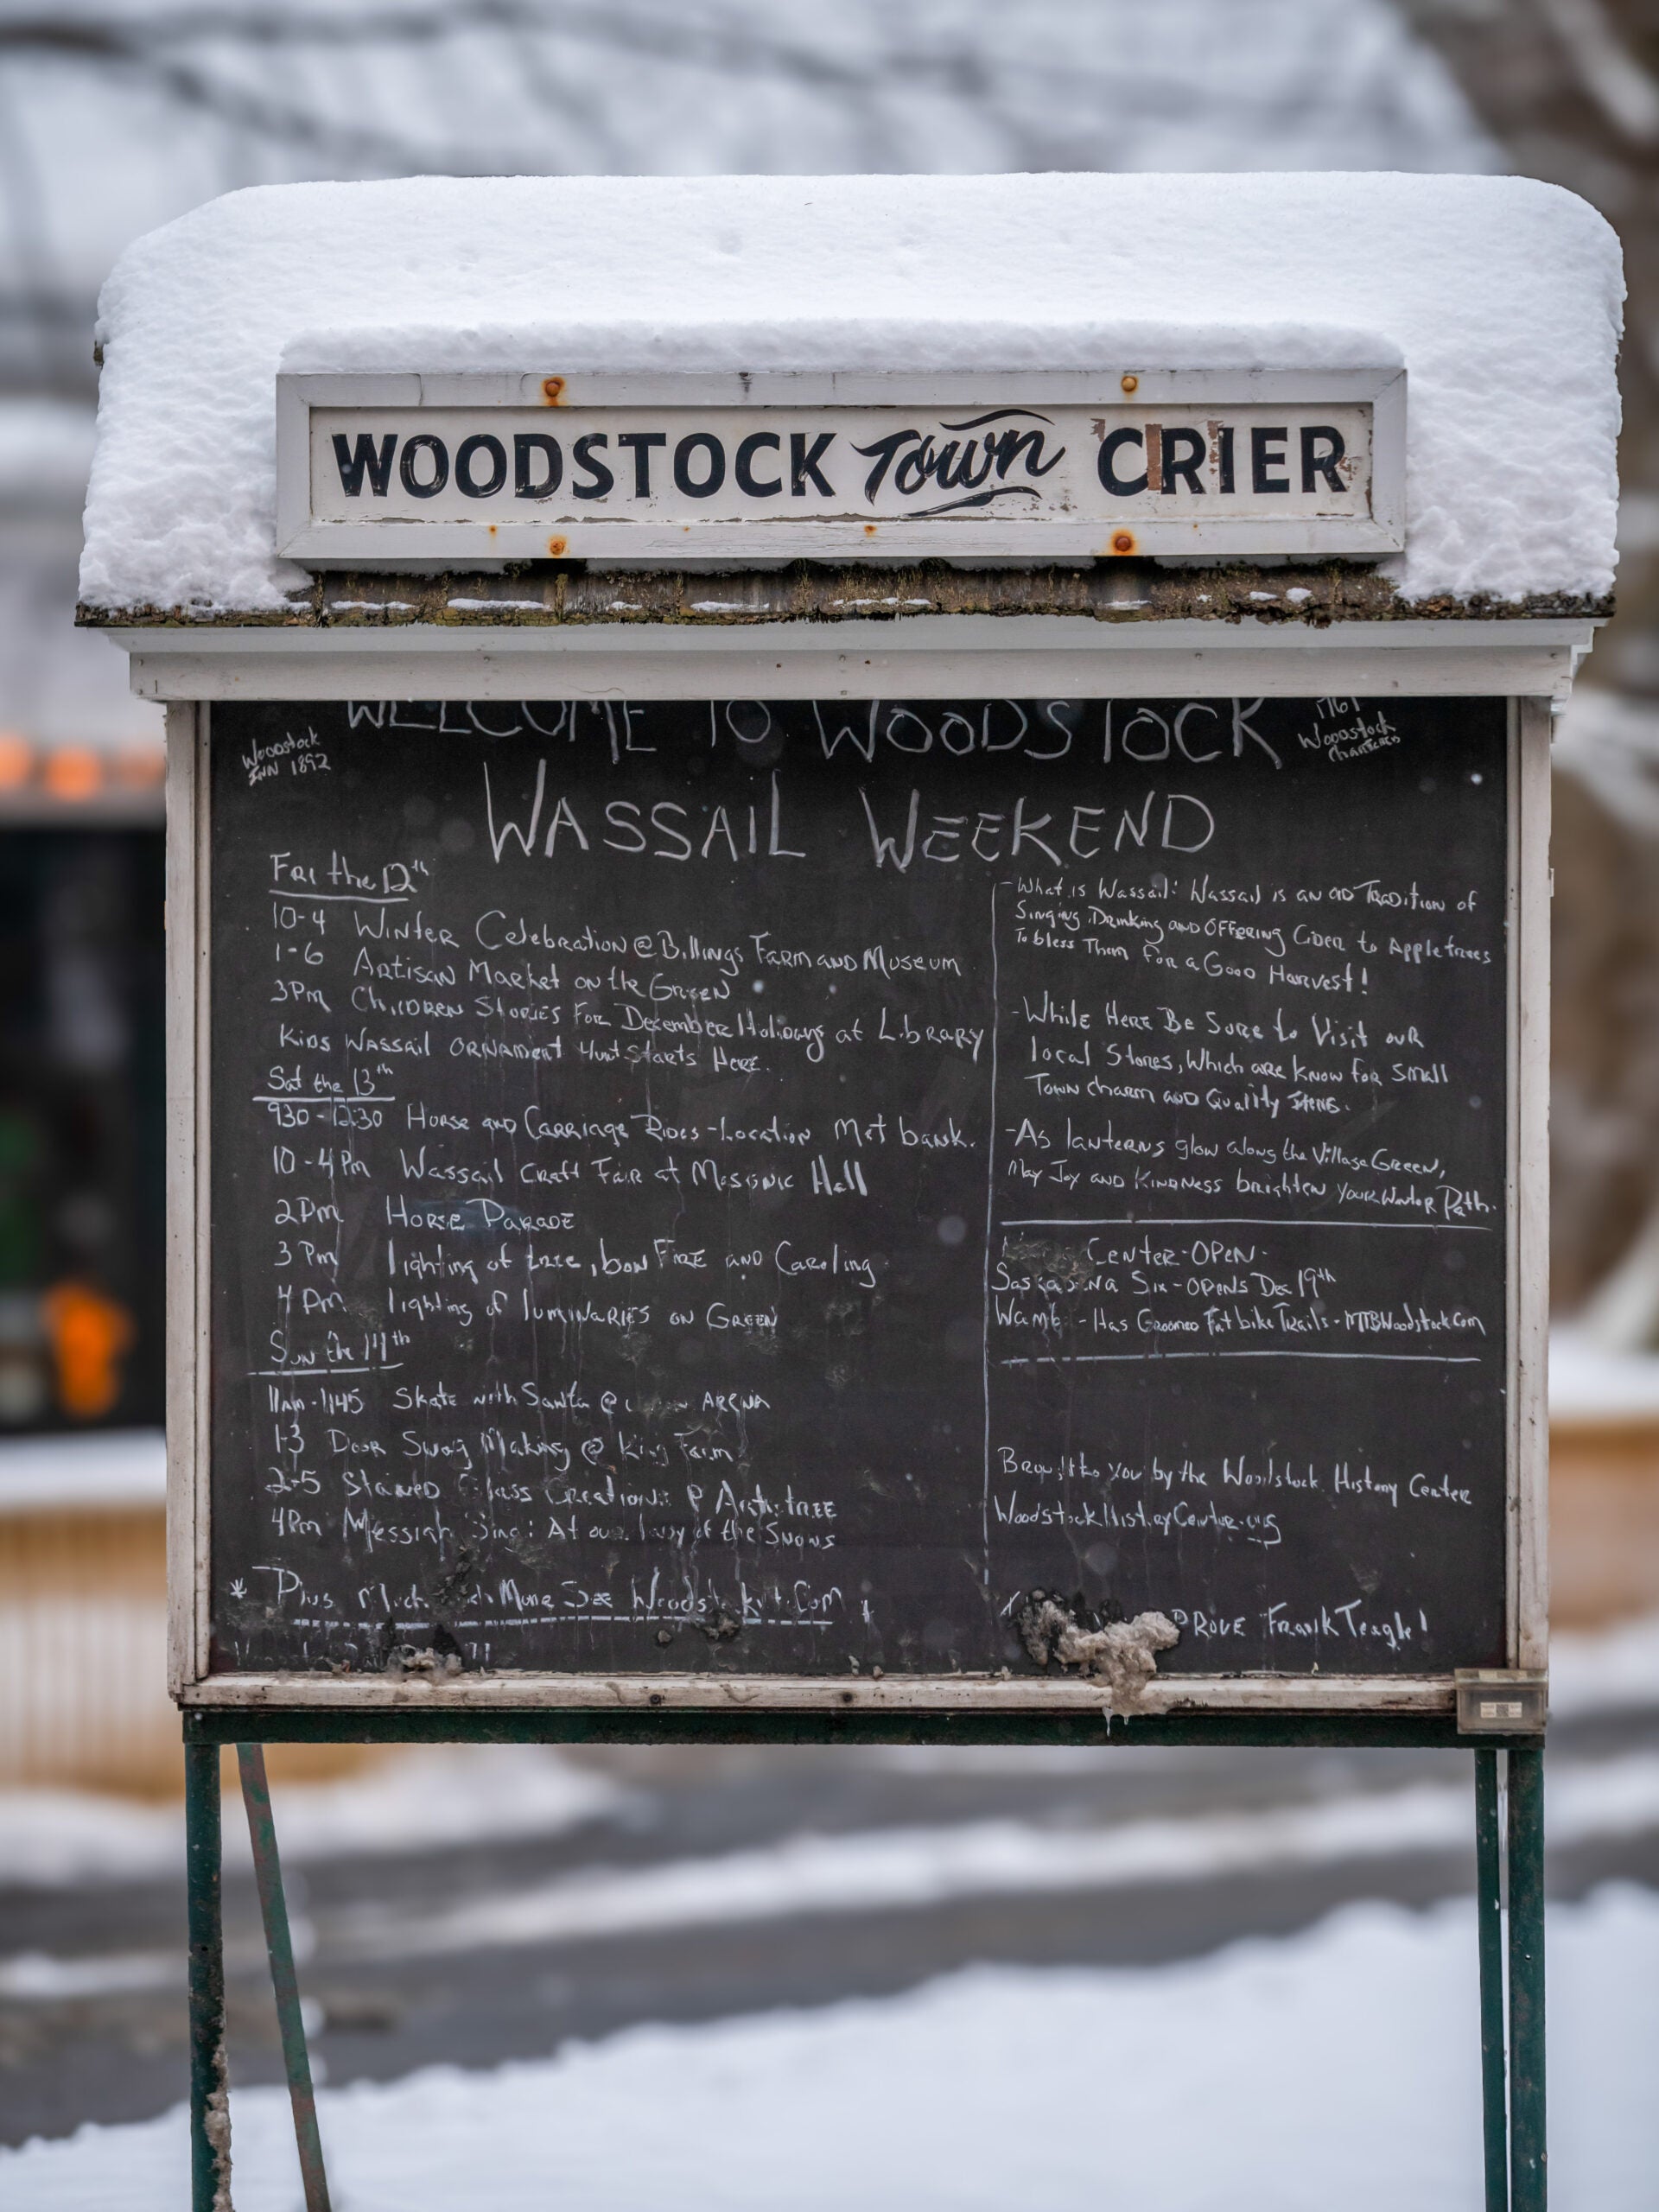 WOODSTOCK Town CRIER
WELCOME TO WOODSTOCK
Woodstock
INN 1892
1761
Woodstock
Chartered
WASSAIL WEEKEND
Fri the 12th
10-4 Winter Celebration @ Billings Farm and Museum
1-6 Artisan Market on the Green
3Pm Children Stories For December Holidays at Library
Kids Wassail ORNAMENT Hunt Starts Here.
Sat the 13th
930-12:30 Horse and Carriage Rides - Location Met bank.
10-4Pm Wassail Craft Fair at Masonic Hall
2Pm Horse Parade
3 Pm lighting of tree, bon Fire and Caroling
4 Pm lighting of luminaries on Green
Sun the 14th
11am-1145 Skate with Santa @ ARENA
1-3 Door Swag Making @ King Farm
2-5 Stained Glass Creations @ Artistree
4Pm Messiah Sing: At our lady of the Snows
* Plus Much More See Woodstockvt.Com
- What is Wassail: Wassail is an old Tradition of
Singing, Drinking and OFFering Cider to Apple trees
To bless Them for a Good Harvest!
- While Here Be Sure to Visit our
local Stores, Which are know for Small
Town charm and Quality Items.
- As lanterns glow along the Village Green,
May Joy and Kindness brighten your Winter Path.
Center - OPEN -
Saskadena Six - OPENS Dec 19th
Wamb - Has Groomed Fat bike Trails - MTBWoodstock.com
Brought to You by the Woodstock History Center
WoodstockHistoryCenter.org
PROVE Frank Teagle!